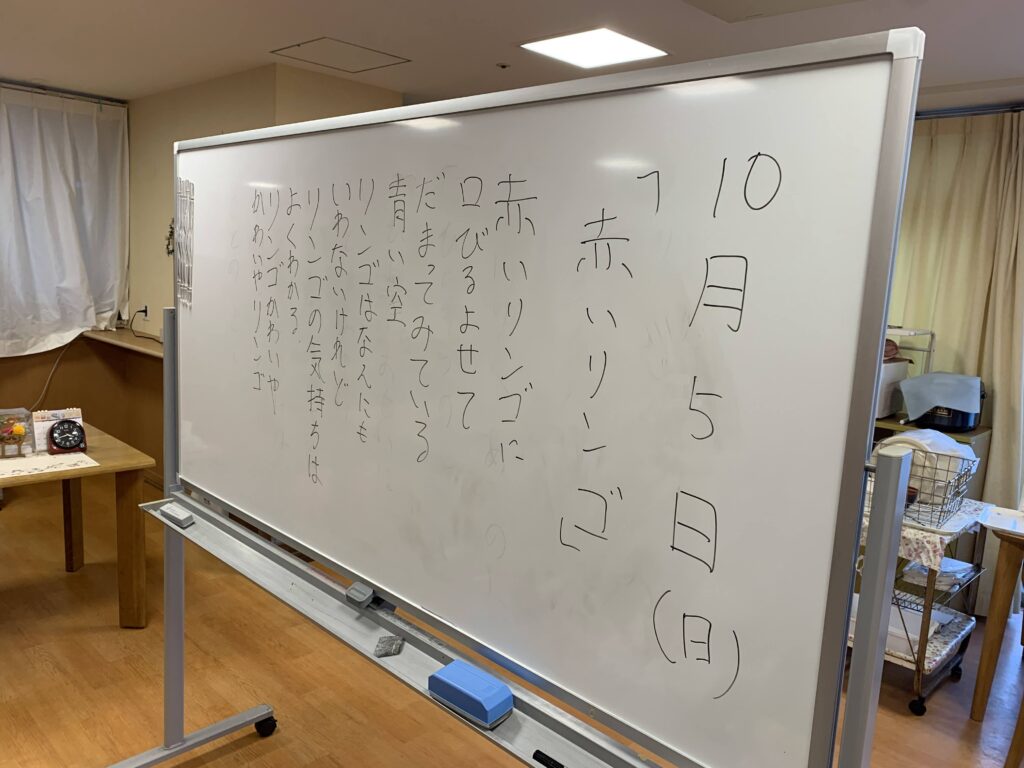 10月5日(日)
「赤いリンゴ」
赤いリンゴに
口びるよせて
だまってみている
青い空
リンゴはなんにも
いわないけれど
リンゴの気持ちは
よくわかる
リンゴかわいや
かわいやリンゴ